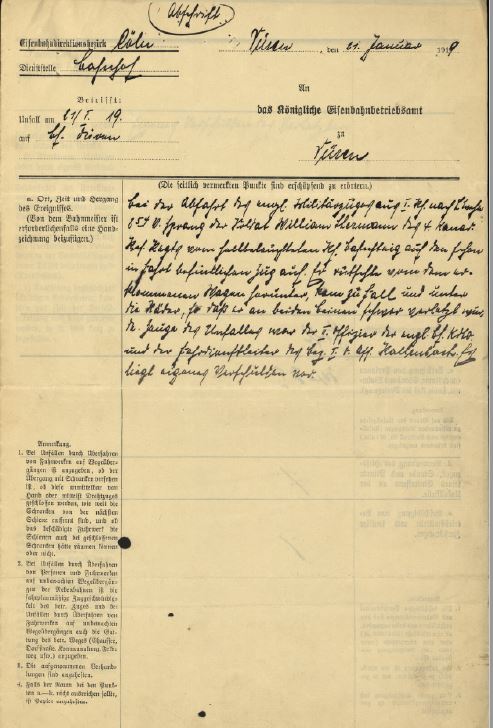 Abschrift
Eisenbahndirektionsbezirk Cöln
Düren, den 21. Januar 1919
Dienststelle Bahnhof
An
Betrifft:
das Königliche Eisenbahnbetriebsamt
Unfall am 21/I. 19.
zu
auf Bf. Düren
Düren
(Die seitlich vermerkten Punkte sind erschöpfend zu erörtern.)
a. Ort, Zeit und Hergang
des Ereignisses.
(Von dem Bahnmeister ist
erforderlichenfalls eine Hand-
zeichnung beizufügen.)
Bei der Abfahrt des engl. Militärzuges aus I. Kl. nach
654 V. sprang der Soldat William Hermann des 4 Kanad.
vom halbbeleuchteten Bf. Bahnsteig auf den schon
in Fahrt befindlichen Zug auf. Er rutschte von dem er-
klommenen Wagen herunter, kam zu Fall und unter
die Räder, so daß er an beiden Beinen schwer verletzt wurde.
Zeuge des Unfalles war der I. Offizier der engl. Bf. Kdo
und der Fahrdienstleiter des Bez. I Kallenbach. Es
liegt eigenes Verschulden vor.
Anmerkung.
1. Bei Unfällen durch Überfahren
von Fuhrwerken auf Wegeüber-
gängen ist anzugeben, ob der
Übergang mit Schranken versehen
ist, ob diese unmittelbar von
Hand oder mittelst Drahtzuges
geschlossen werden, wie weit die
Schranken von der nächsten
Schiene entfernt sind, und ob
das beschädigte Fuhrwerk die
Schienen auch bei geschlossenen
Schranken hätte räumen können
oder nicht.
2. Bei Unfällen durch Überfahren
von Personen und Fuhrwerken
auf unbewachten Wegeübergän-
gen der Nebenbahnen ist die
fahrplanmäßige Zuggeschwindig-
keit des betr. Zuges und bei
Unfällen durch Überfahren von
Fuhrwerken auf unbewachten
Wegeübergängen auch die Gat-
tung des betr. Weges (Chaussee,
Dorfstraße, Kommunalweg, Feld-
weg usw.) anzugeben.
3. Die aufgenommenen Verhand-
lungen sind anzuheften.
4. Falls der Raum bei den Punk-
ten a.—k. nicht ausreichen sollte,
ist Papier anzuheften.